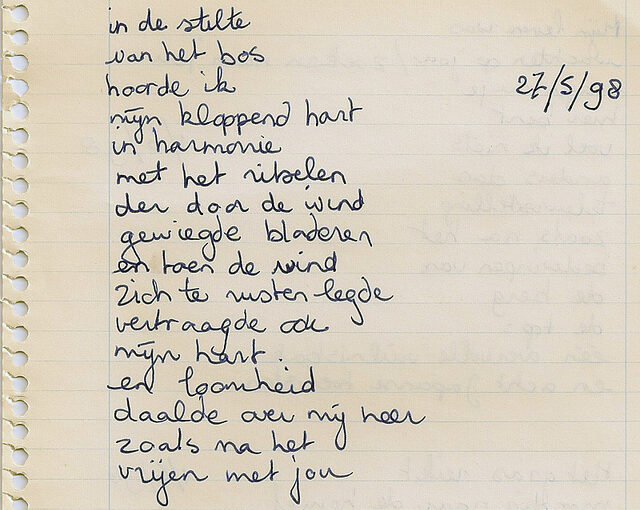 in de stilte
van het bos
hoorde ik
27/5/98
mijn kloppend hart
in harmonie
met het ritselen
der door de wind
gewiegde bladeren
en toen de wind
zich te rusten legde
vertraagde ook
mijn hart.
en loomheid
daalde over mij neer
zoals na het
vrijen met jou